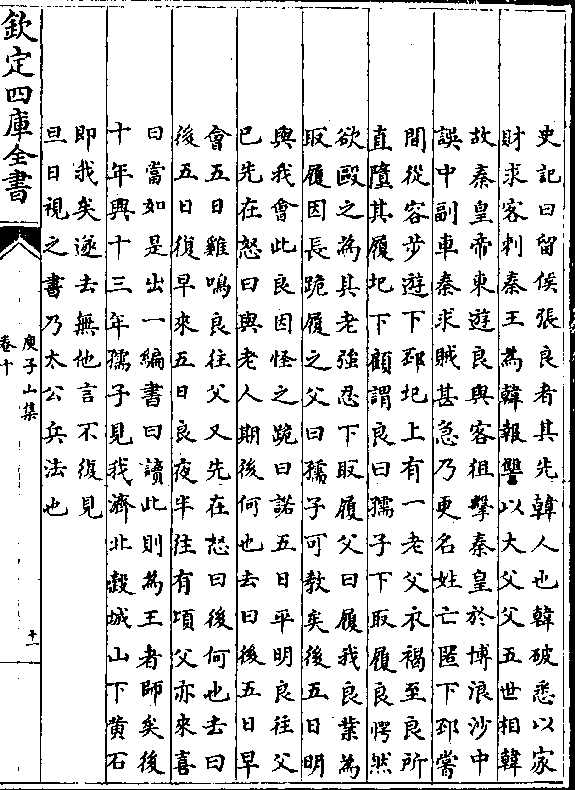 史記曰留侯張良者其先韓人也韓破悉以家
財求客刺秦王為韓報讐以大父父五世相韓
故秦皇帝東遊良與客狙擊秦皇於博浪沙中
誤中副車秦求賊甚急乃更名姓亡匿下邳嘗
間從容步遊下邳圯上有一老父衣褐至良所
直墮其履圯下顧謂良曰孺子下取履良愕然
欲毆之為其老強忍下取履父曰履我良業為
取履因長跪履之父曰孺子可教矣後五日明
與我會此良因怪之跪曰諾五日平明良往父
已先在怒曰與老人期後何也去曰後五日早
會五日雞鳴良往父又先在怒曰後何也去曰
後五日復早來五日良夜半往有頃父亦來喜
曰當如是出一編書曰讀此則為王者師矣後
十年興十三年孺子見我濟北穀城山下黄石
即我矣遂去無他言不復見
旦日視之書乃太公兵法也
欽定四庫全書
庾子山集
卷十
十一